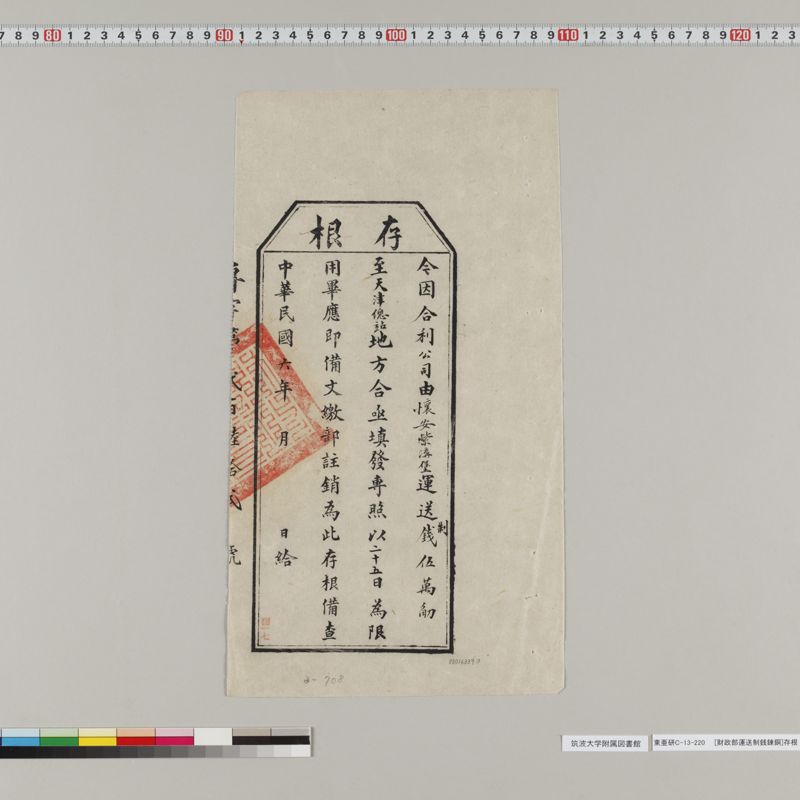 7 8 9 80 1 2 3 4 5 6 7 8 9 90 1 2 3 4 5 6 7 8 9 100 1 2 3 4 5 6 7 8 9 110 1 2 3 4 5 6 7 8 9 120 1 2 3
存根
今因合利公司由懷安柴溝堡運送制錢伍萬觔
至天津總站地方合亟填發專照以二十五日為限
用畢應即備文繳部註銷為此存根備查
中華民國六年 月 日給
專字第 貳百陸拾貳號
a-708
筑波大学附属図書館
東亜研C-13-220 [財政部運送制銭錬銅]存根